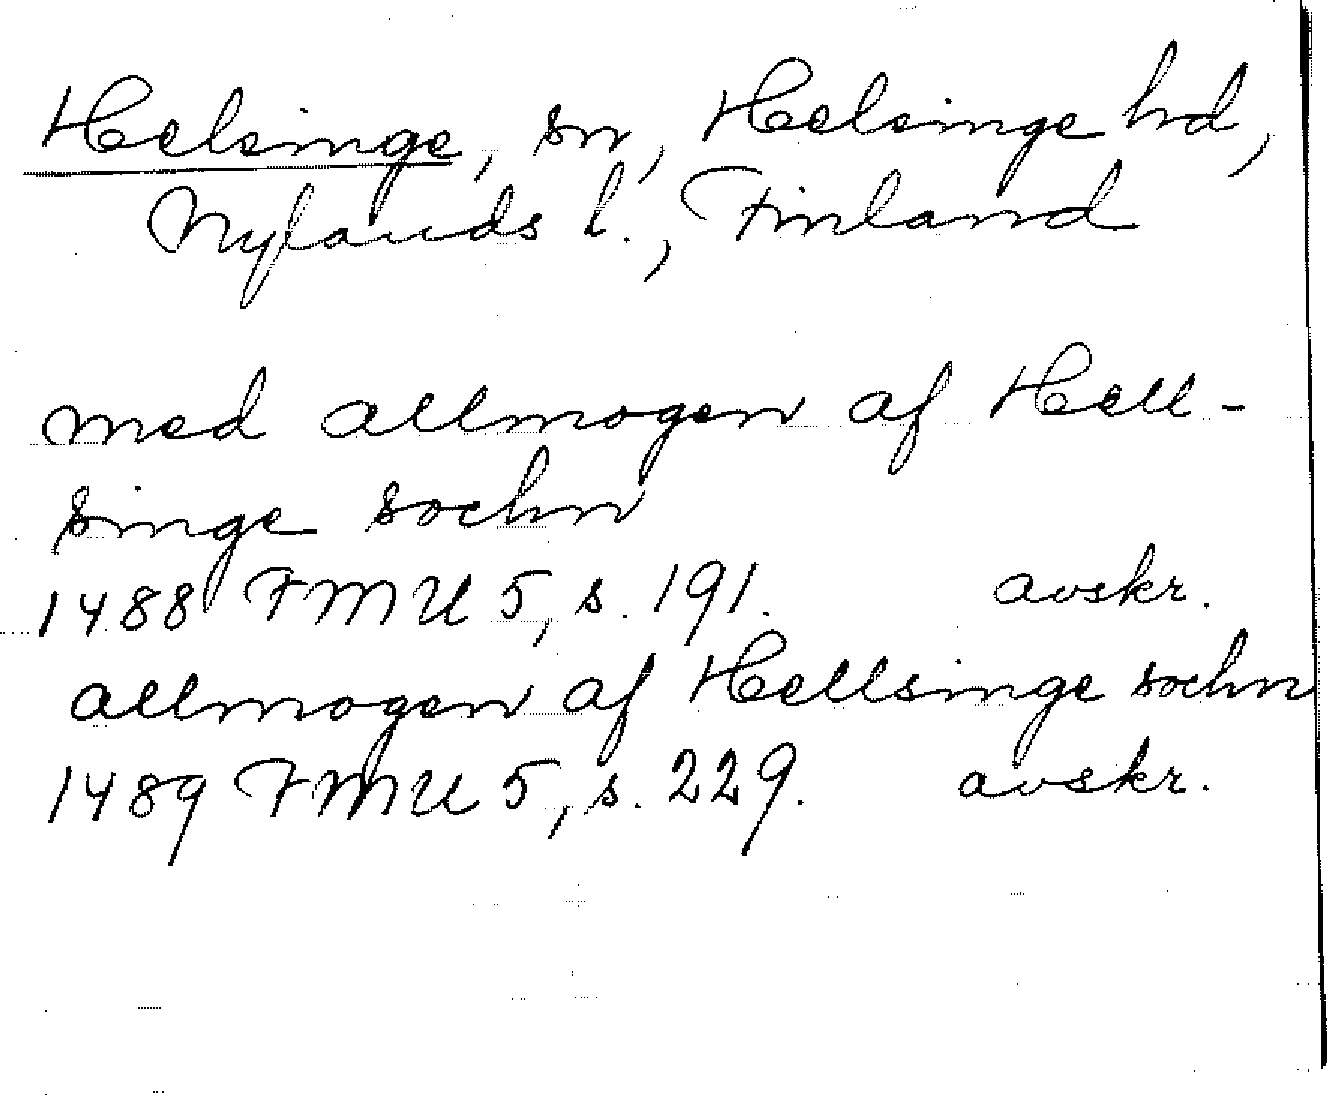 Helsinge, sn, Helsinge hd,
Nylands l., Finland
med allmogen af Hell-
singe sochn
1488 FMU 5, s. 191. avskr.
allmogen af Hellsinge sochn
1489 FMU 5, s. 229. avskr.